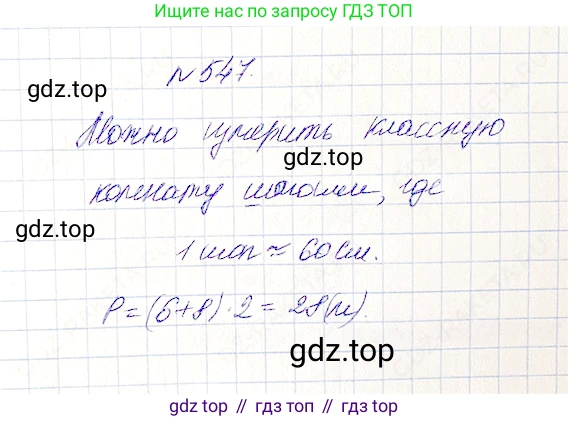 Ищите нас по запросу ГДЗ ТОП
№ 547.
gdz.top
Можно измерить классную
gdz.top
комнату шагами, где
gdz.top
1 шаг ≈ 60 см.
P = (6+8) · 2 = 28 (м).
gdz.top
gdz top // гдз топ // гдз.top